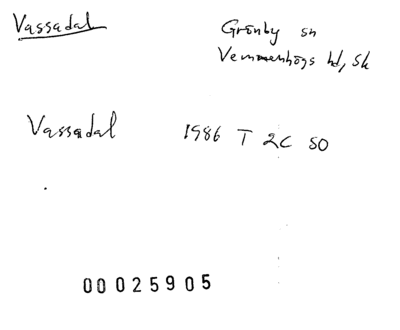 Vassadal
Grönby sn
Vemmenhögs hd, Sk
Vassadal 1986 T 2C SO
00025905